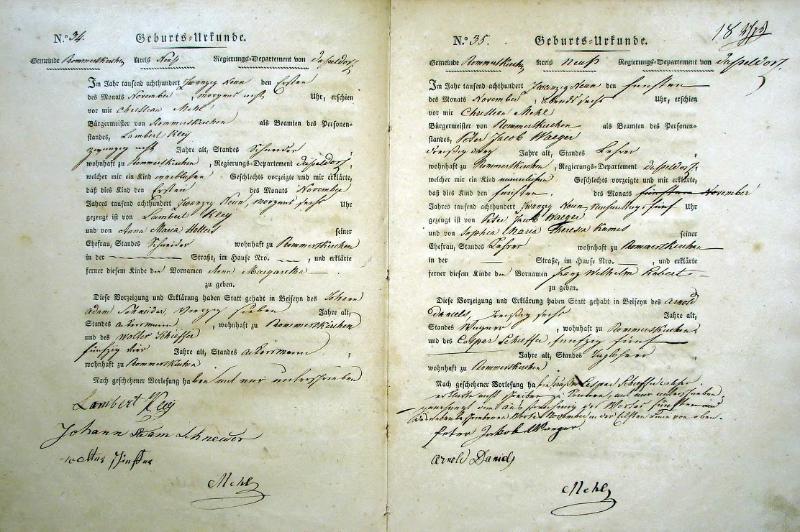 N.º 34. Geburts-Urkunde.
Gemeinde Rommerskirchen Kreis Neuß Regierungs-Departement von Düsseldorf
Im Jahre tausend achthundert zwanzig Neun den Ersten
des Monats November morgens acht Uhr, erschien
vor mir Christian Mehl
Bürgermeister von Rommerskirchen als Beamten des Personen-
standes, Lambert
zwanzig acht Jahre alt, Standes Schneider
wohnhaft zu Rommerskirchen, Regierungs-Departement Düsseldorf,
welcher mir ein Kind weiblichen Geschlechts vorzeigte und mir erklärte,
daß dies Kind den Ersten des Monats November
Jahres tausend achthundert zwanzig Neun, morgens sechs Uhr
gezeugt ist von Lambert
und von Anna Maria seiner
Ehefrau, Standes Schneider wohnhaft zu Rommerskirchen
in der Straße, im Hause Nro. , und erklärte
ferner diesem Kinde den Vornamen Anna Margaretha
zu geben.
Diese Vorzeigung und Erklärung haben Statt gehabt in Beiseyn des Johann
Adam Schneider vierzig sieben Jahre alt,
Standes Ackersmann, wohnhaft zu Rommerskirchen
und des Walter
fünfzig vier Jahre alt, Standes Ackersmann,
wohnhaft zu Rommerskirchen
Nach geschehener Vorlesung haben mit mir unterschrieben
Lambert
Johann Adam Schneider
Mehl
N.º 35. Geburts-Urkunde. 18
Gemeinde Rommerskirchen Kreis Neuß Regierungs-Departement von Düsseldorf.
Im Jahre tausend achthundert zwanzig Neun den fünften
des Monats November, Abends sechs Uhr, erschien
vor mir Christian Mehl
Bürgermeister von Rommerskirchen als Beamten des Personen-
standes, Peter Jacob Waeger
Jahre alt, Standes Lehrer
wohnhaft zu Rommerskirchen, Regierungs-Departement Düsseldorf
welcher mir ein Kind männlichen Geschlechts vorzeigte und mir erklärte,
daß dies Kind den fünften des Monats fünften November
Jahres tausend achthundert zwanzig Neun, Nachmittags fünf Uhr
gezeugt ist von Peter Jacob Waeger
und von Sophia Maria Theresia Kames seiner
Ehefrau, Standes Lehrer wohnhaft zu Rommerskirchen
in der Straße, im Hause Nro. , und erklärte
ferner diesem Kinde den Vornamen Franz Wilhelm Hubert
zu geben.
Diese Vorzeigung und Erklärung haben Statt gehabt in Beiseyn des Arnold
Daniels, dreißig sechs Jahre alt,
Standes , wohnhaft zu Rommerskirchen
und des Caspar fünfzig fünf
Jahre alt, Standes Taglöhner
wohnhaft zu Rommerskirchen
Nach geschehener Vorlesung
Peter Jakob Waeger
Arnold Daniels
Mehl